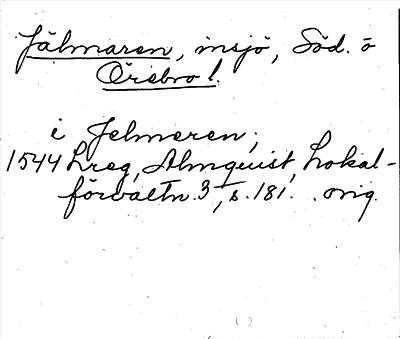 Jälmaren, insjö, Söd. o
Örebro l.
i Jelmeren,
1544 Lreg, Almquist, Lokal-
förvaltn. 3, s. 181. orig.